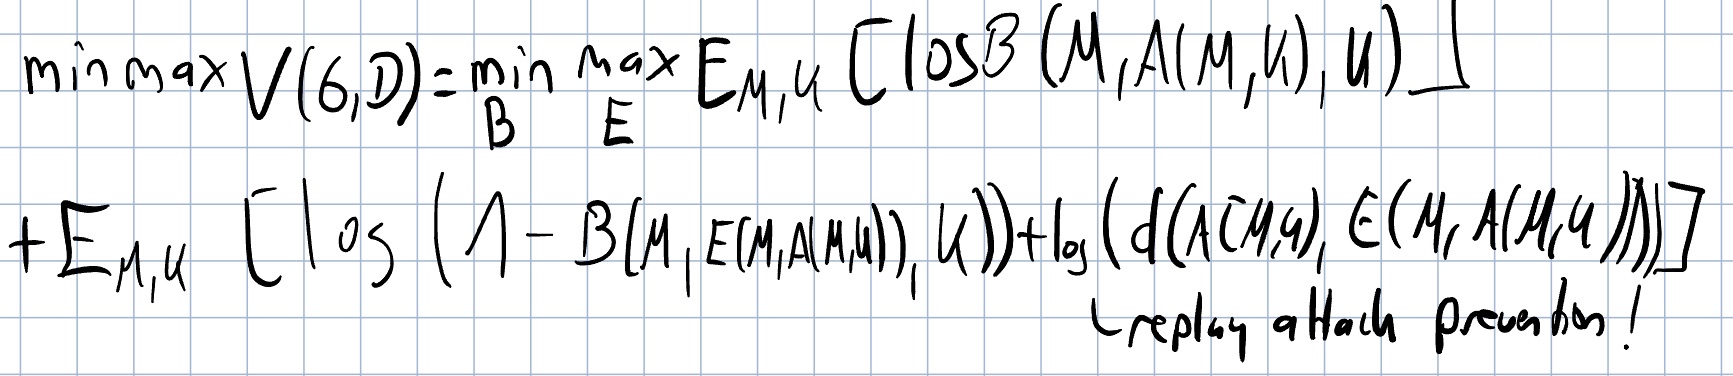 min max V(G,D) = min_B max_E E_{M,K} [log B(M, A(M,K), K)]
+ E_{M,K} [log (1 - B(M, E(M, A(M,K)), K)) + log (d(A(M,K), E(M, A(M,K))))]
replay attack prevention!